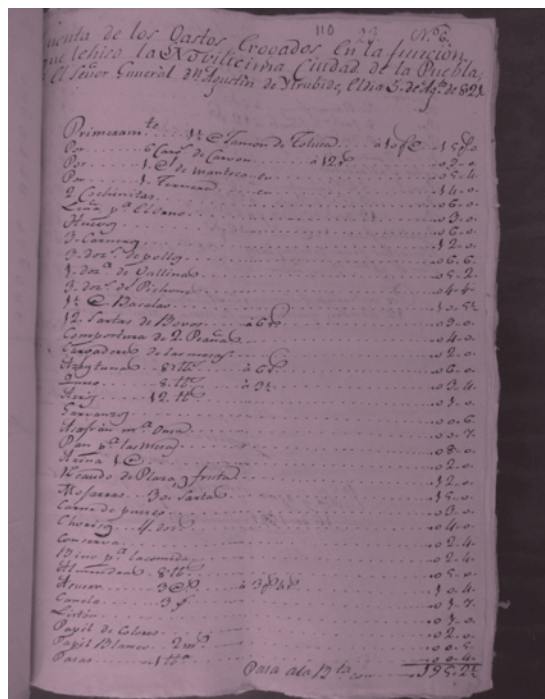 110 22 Nº 6.
Cuenta de los Gastos Erogados en la función
que le hiso la Novilicima Ciudad de la Puebla,
El Señor General Dn. Agustin de Yturbide, el dia 5 de Agto. de 821
Primeramte. @ Jamon de Toluca 15
Por 6 Carg. de Carvon à 12 r
Por 1. @ de manteca 0 5 4
Por 1. Ternera 1 4 0
2 Cochinitos 0 6 0
Leña pa. el 0 3 0
Huevos 0 6 0
3. Carneros 1 2 0
3. dozs. de pollos 0 6 6
1. doza. de Gallinas 0 5 2
3. dozs. de Pichones 0 4 4
@ Bacalao 1 0 5½
12. Sartas de Bovos à 6 rs
Compostura de 2 0 4 0
de las mesas 0 2 0
Azeytunas 8 tts. 0 6 0
8 tts. à 3 0 3 4
Arroz 12 tts. 0 1 0
Garvanzos 0 0 6
Asafran ma. Onza 0 0 7
Pan pa. las Mesas 0 8 0
Arina 1 @ 0 2 0
de Plaza, y fruta 1 2 0
Mojarras 30 Sartas 1 5 0
Carne de puerco 0 3 0
Chorisos 4 dozs. 0 4 0
Conserva 0 2 4
Bino pa. la comida 0 2 4
Almendra 8 tts. 0 5 0
Asucar 3 @ 1 0 4
Canela 0 1 7
Listón 0 1 0
Papel de Colores 0 2 0
Papel Blanco 2 ms. 0 0 5
Pasas 1 tta. 0 0 4
Pasa ala Bta. con 195.2½